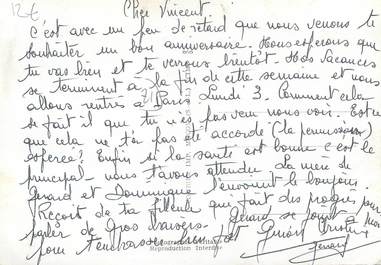 12€
Cher Vincent.
C'est avec un peu de retard que nous venons te
souhaiter un bon anniversaire. Nous espérons que
tu vas bien et te verrons bientôt. Nos vacances
se terminent à la fin de cette semaine et nous
allons rentrés à Paris Lundi 3. Comment cela
se fait il que tu n'es pas venu nous voir. Est ce
que cela ne t'a pas été accordé (la permission)
espérée? Enfin si la santé est bonne c'est le
principal. nous t'avons attendu. La mère de
Gérard et Dominique t'envoient le bonjour.
Reçoit de ta filleule qui fait des progrès pour
parler de Gros baisers. Gérard se joint à moi
pour t'embrasser bien fort Gérard Christine
Reproduction Interdite